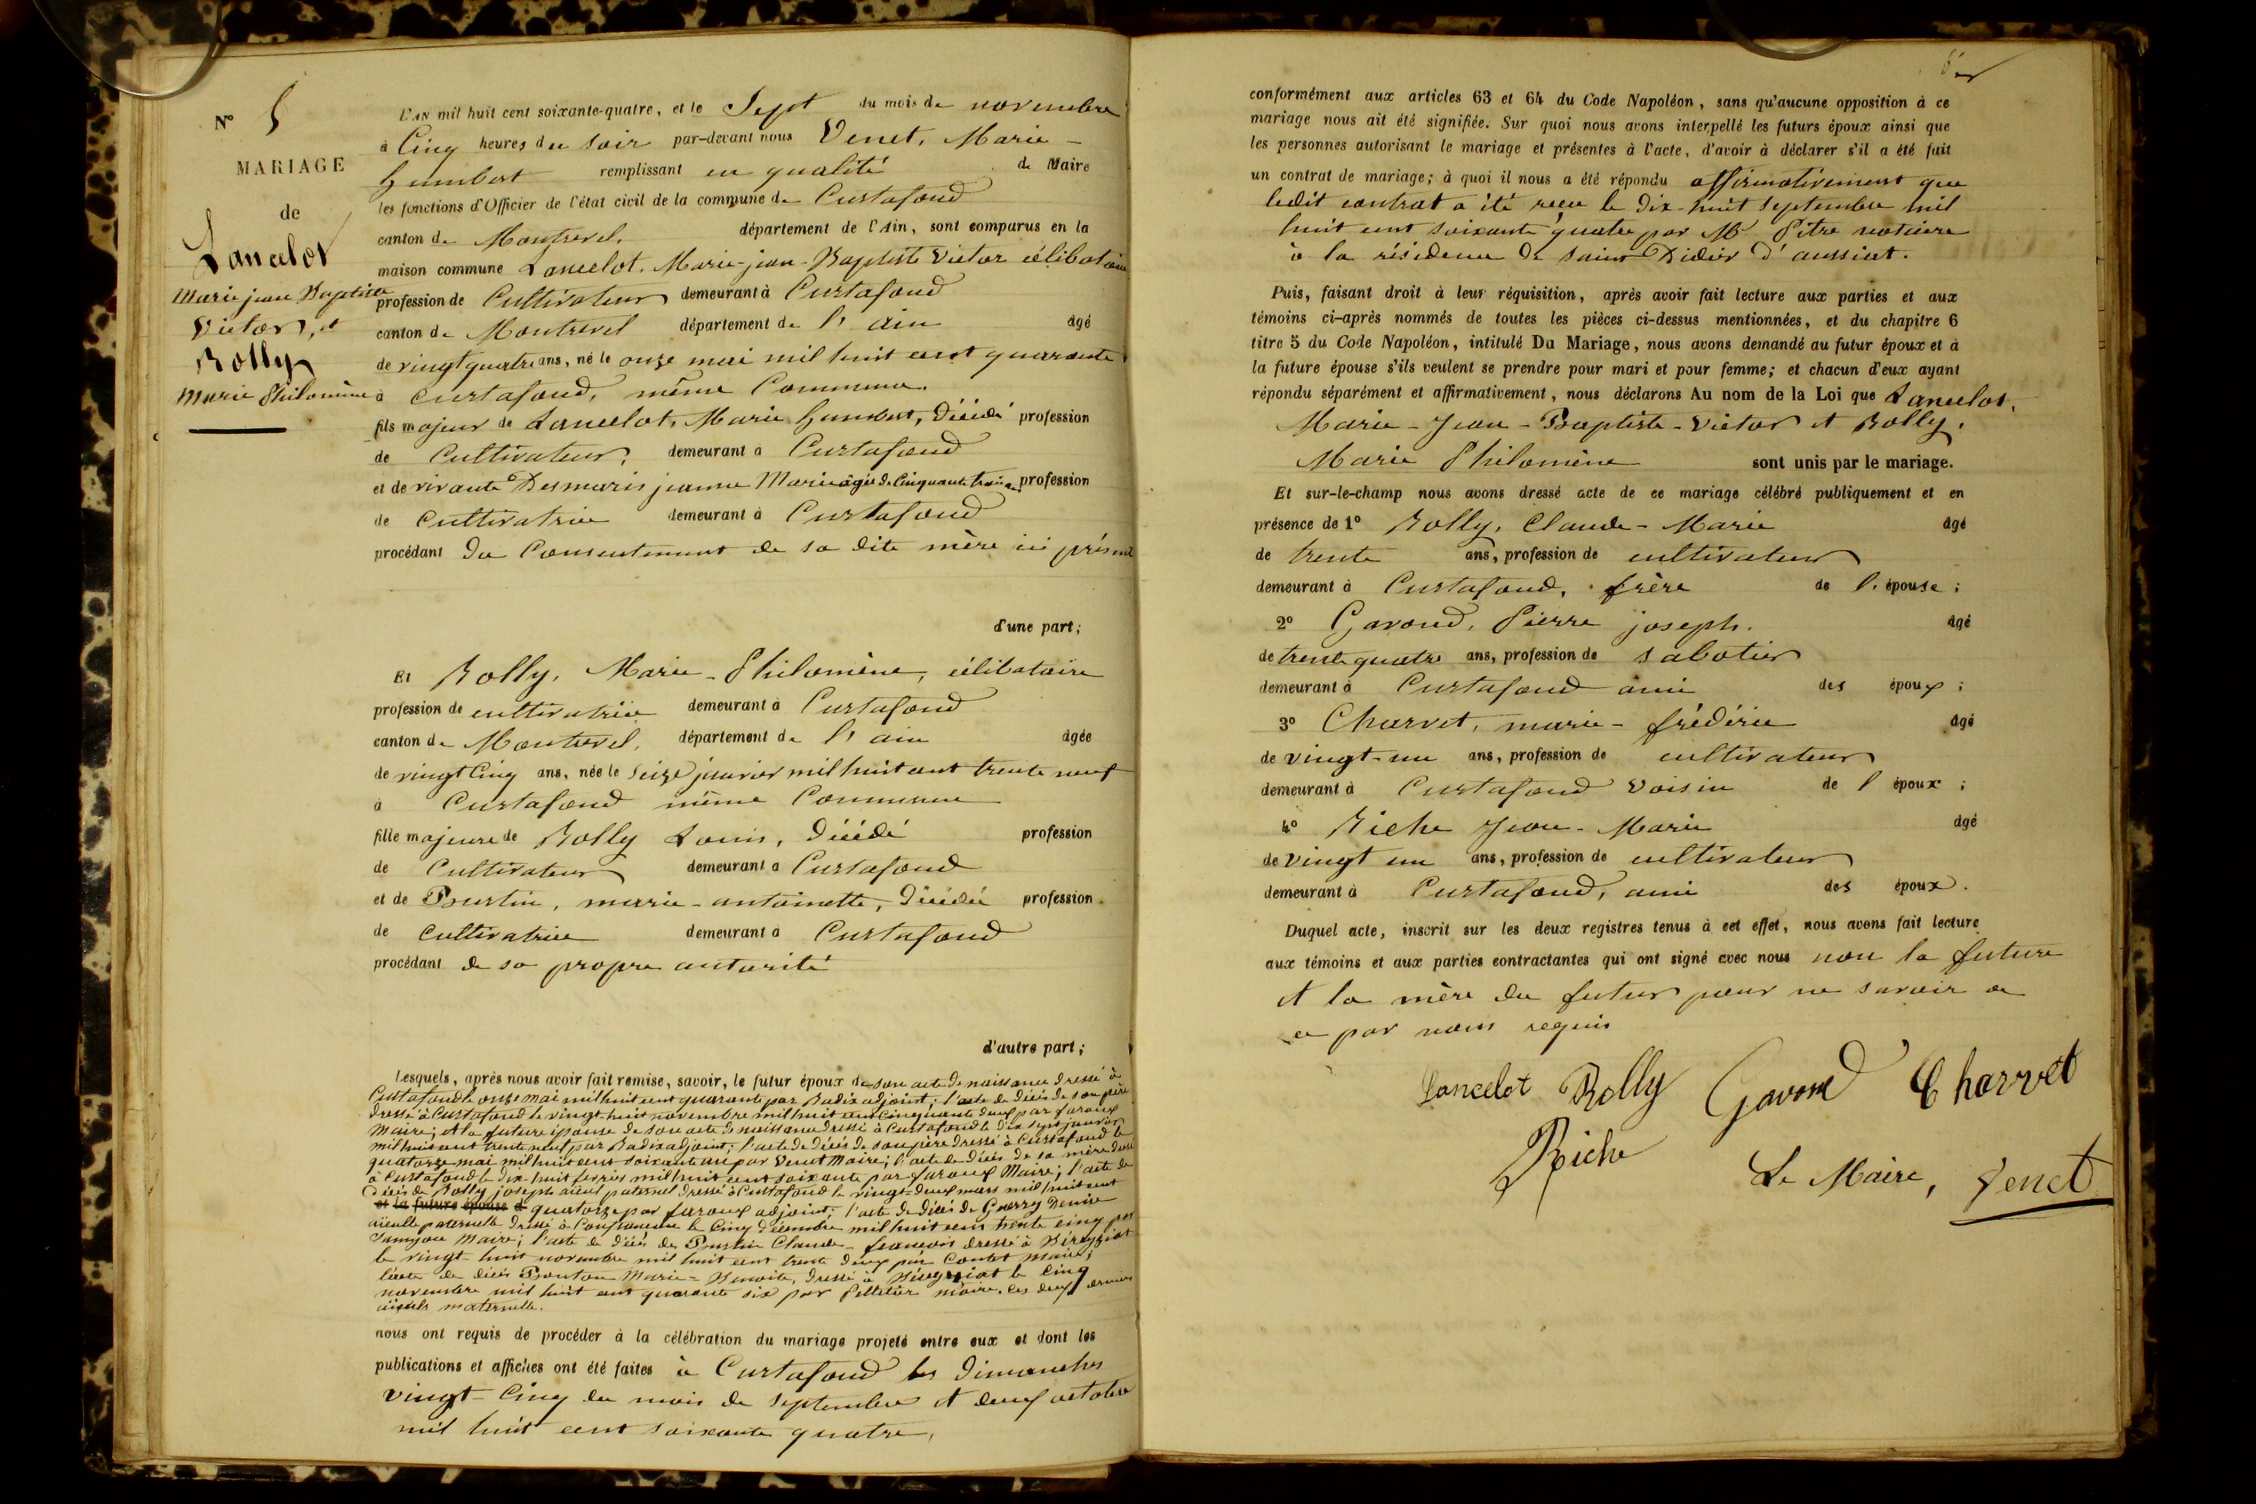 N° 5
MARIAGE
de
Lancelot
Marie jean Baptiste
Victor, et
Bolly
Marie Philomène
L'AN mil huit cent soixante-quatre, et le Sept du mois de novembre
à Cinq heures du soir par-devant nous Venet, Marie-
humbert remplissant en qualité de Maire
les fonctions d'Officier de l'état civil de la commune de Curtafond
canton de Montrevel, département de l'Ain, sont comparus en la
maison commune Lancelot, Marie-jean-Baptiste Victor célibataire
profession de Cultivateur demeurant à Curtafond
canton de Montrevel département de l'ain âgé
de vingt quatre ans, né le onze mai mil huit cent quarante
à Curtafond, même Commune.
fils majeur de Lancelot, Marie humbert, décédé profession
de Cultivateur, demeurant à Curtafond
et de vivante Desmaris jeanne Marie âgée de Cinquante trois ans profession
de Cultivatrice demeurant à Curtafond
procédant du Consentement de sa dite mère ici présente
d'une part;
Et Bolly, Marie-Philomène, célibataire
profession de cultivatrice demeurant à Curtafond
canton de Montrevel, département de l'ain âgée
de vingt Cinq ans, née le seize janvier mil huit cent trente neuf
à Curtafond même Commune
fille majeure de Bolly Louis, décédé profession
de Cultivateur demeurant à Curtafond
et de Poustin, marie-antoinette, décédée profession
de Cultivatrice demeurant à Curtafond
procédant de sa propre autorité
d'autre part;
Lesquels, après nous avoir fait remise, savoir, le futur époux de son acte de naissance dressé à
Curtafond le onze mai mil huit cent quarante par Badix adjoint; l'acte de décès de son père
dressé à Curtafond le vingt-huit novembre mil huit cent Cinquante deux par faroux
Maire; et la future épouse de son acte de naissance dressé à Curtafond le dix sept janvier
mil huit cent trente neuf par Badix adjoint; l'acte de décès de son père dressé à Curtafond le
quatorze mai mil huit cent soixante un par Venet Maire; l'acte de décès de sa mère dressé
à Curtafond le dix-huit fevrier mil huit cent soixante par faroux Maire; l'acte de
Décès de Bolly joseph aïeul paternel dressé à Curtafond le vingt-deux mars mil huit cent
et la future épouse d quatorze par faroux adjoint; l'acte de décès de Guerry Denise
aïeulle paternelle dressé à Confrançon le Cinq décembre mil huit cent trente cinq par
Maire; l'acte de décès de Poustin Claude-françois dressé à Béréyziat
le vingt-huit novembre mil huit cent trente deux par Contet maire;
l'acte de décès Bouton Marie-Benoite, dressé à Béréyziat le Cinq
novembre mil huit cent quarante six par Pelletier maire. les deux derniers
aïeuls maternelle.
nous ont requis de procéder à la célébration du mariage projeté entre eux et dont les
publications et affiches ont été faites à Curtafond les Dimanches
vingt-Cinq du mois de septembre et deux octobre
mil huit cent soixante quatre,
conformément aux articles 63 et 64 du Code Napoléon, sans qu'aucune opposition à ce
mariage nous ait été signifiée. Sur quoi nous avons interpellé les futurs époux ainsi que
les personnes autorisant le mariage et présentes à l'acte, d'avoir à déclarer s'il a été fait
un contrat de mariage; à quoi il nous a été répondu affirmativement que
ledit contrat a été reçu le dix-huit septembre mil
huit cent soixante quatre par Me Pitre notaire
à la résidence de saint Didier d'aussiat.
Puis, faisant droit à leur réquisition, après avoir fait lecture aux parties et aux
témoins ci-après nommés de toutes les pièces ci-dessus mentionnées, et du chapitre 6
titre 5 du Code Napoléon, intitulé Du Mariage, nous avons demandé au futur époux et à
la future épouse s'ils veulent se prendre pour mari et pour femme; et chacun d'eux ayant
répondu séparément et affirmativement, nous déclarons Au nom de la Loi que Lancelot,
Marie-Jean-Baptiste-Victor et Bolly,
Marie Philomène sont unis par le mariage.
Et sur-le-champ nous avons dressé acte de ce mariage célébré publiquement et en
présence de 1° Bolly, Claude-Marie âgé
de trente ans, profession de cultivateur
demeurant à Curtafond, frère de l'épouse;
2° Gavand, Pierre joseph. âgé
de trente quatre ans, profession de sabotier
demeurant à Curtafond ami des époux;
3° Charvet, marie-frédéric âgé
de vingt-un ans, profession de cultivateur
demeurant à Curtafond voisin de l'époux;
4° Riche Jean-Marie âgé
de vingt un ans, profession de cultivateur
demeurant à Curtafond, ami des époux.
Duquel acte, inscrit sur les deux registres tenus à cet effet, nous avons fait lecture
aux témoins et aux parties contractantes qui ont signé avec nous non la future
et la mère du futur pour ne savoir de
ce par nous requis
Lancelot Bolly Gavand Charvet
Riche
Le Maire, Venet